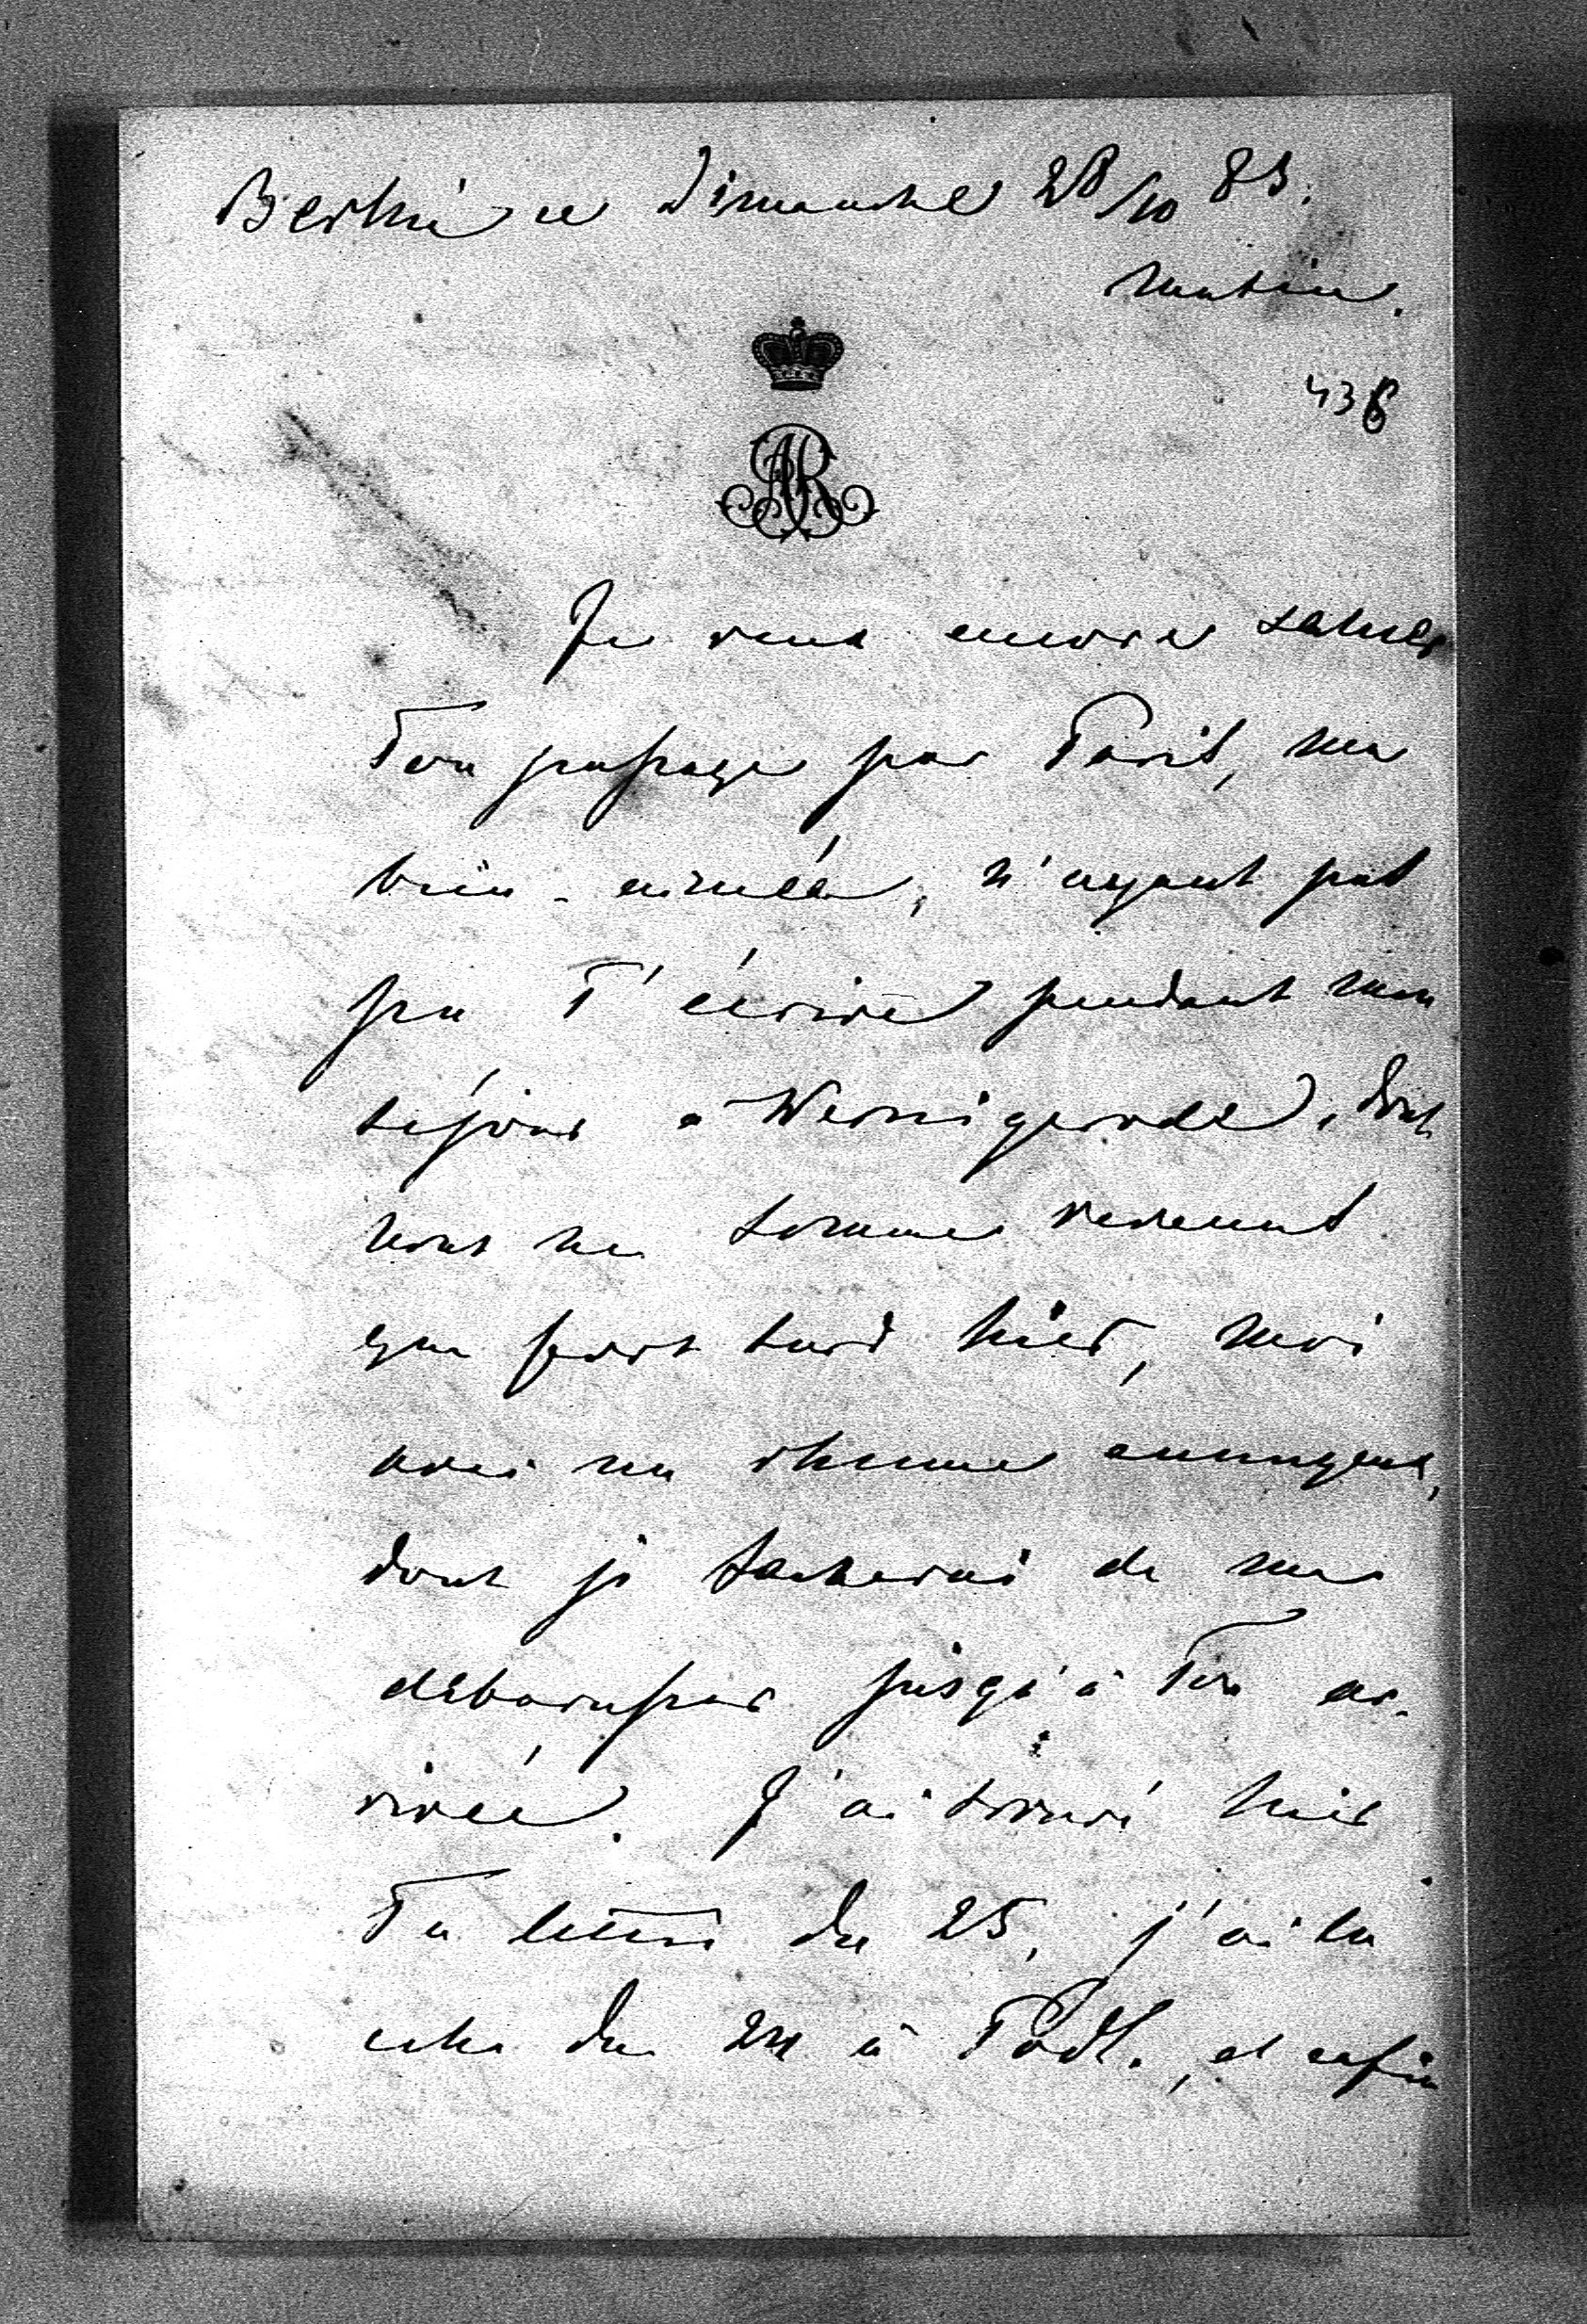 Berlin ce Dimanche 28/10 83.
matin.
438
AR
Je veux encore saluer
Ton passage par Paris, ma
bien-aimée, n'ayant pas
pu T'écrire pendant mon
séjour à Wernigerode, dont
nous ne sommes revenus
que fort tard hier, moi
avec un rhume ennuyeux,
dont je tacherai de me
débarasser jusqu'à Ton ar-
rivée. J'ai trouvé hier
Ta lettre du 25, j'ai lu
celle du 24 à Potd., et enfin